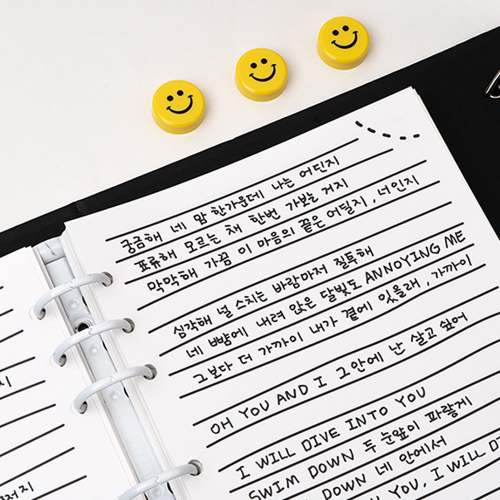 궁금해 네 맘 한가운데 나는 어딘지
표류해 모르는 채 한번 가보는 거지
막막해 가끔 이 마음의 끝은 어딜지, 너인지
심각해 널 스치는 바람마저 질투해
네 뺨에 내려 앉은 달빛도 ANNOYING ME
그보다 더 가까이 내가 곁에 있을래, 가까이
OH YOU AND I 그 안에 난 살고 싶어
I WILL DIVE INTO YOU
SWIM DOWN 두 눈앞이 파랗게
DOWN 네 안에서
YOU, I WILL DI